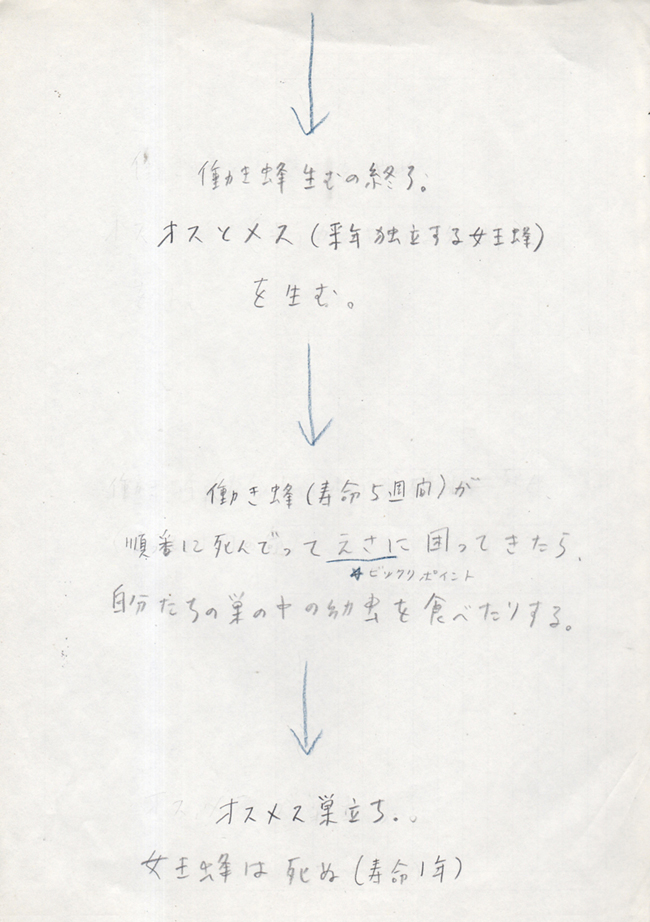 働き蜂生むの終了。
オスとメス(来年独立する女王蜂)
を生む。
働き蜂(寿命5週間)が
順番に死んでってえさに困ってきたら、
★ビックリポイント
自分たちの巣の中の幼虫を食べたりする。
オスメス巣立ち。
女王蜂は死ぬ(寿命1年)